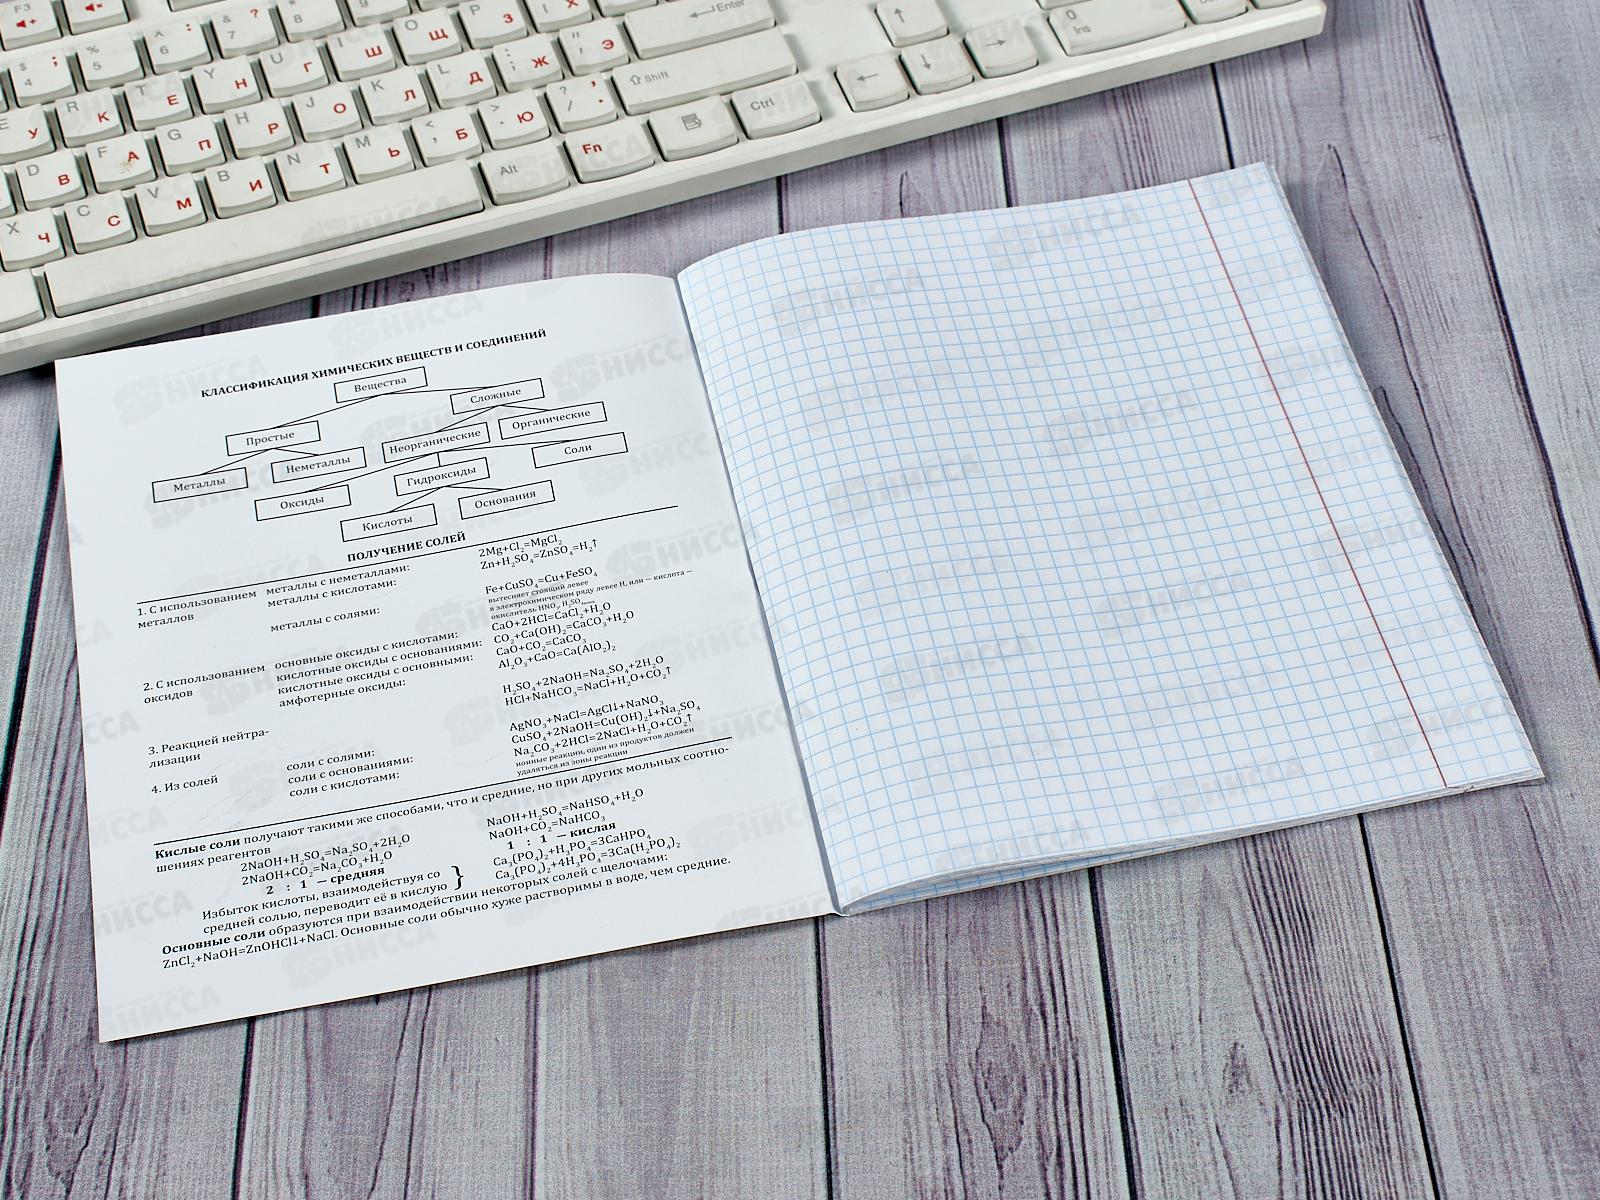 КЛАССИФИКАЦИЯ ХИМИЧЕСКИХ ВЕЩЕСТВ И СОЕДИНЕНИЙ
Вещества
Сложные
Простые
Органические
Неорганические
Неметаллы
Соли
Металлы
Гидроксиды
Оксиды
Основания
Кислоты
ПОЛУЧЕНИЕ СОЛЕЙ
1. С использованием металлов
металлы с неметаллами: 2Mg+Cl₂=MgCl₂
металлы с кислотами: Zn+H₂SO₄=ZnSO₄=H₂↑
металлы с солями: Fe+CuSO₄=Cu+FeSO₄
вытесняет стоящий левее
в электрохимическом ряду левее H, или — кислота —
окислитель HNO₃, H₂SO₄
2. С использованием оксидов
основные оксиды с кислотами: CaO+2HCl=CaCl₂+H₂O
кислотные оксиды с основаниями: CO₂+Ca(OH)₂=CaCO₃+H₂O
кислотные оксиды с основными: CaO+CO₂=CaCO₃
амфотерные оксиды: Al₂O₃+CaO=Ca(AlO₂)₂
3. Реакцией нейтра-
лизации
H₂SO₄+2NaOH=Na₂SO₄+2H₂O
HCl+NaHCO₃=NaCl+H₂O+CO₂↑
4. Из солей
соли с солями: AgNO₃+NaCl=AgCl↓+NaNO₃
соли с основаниями: CuSO₄+2NaOH=Cu(OH)₂↓+Na₂SO₄
соли с кислотами: Na₂CO₃+2HCl=2NaCl+H₂O+CO₂↑
ионные реакции, один из продуктов должен
удаляться из зоны реакции
Кислые соли получают такими же способами, что и средние, но при других мольных соотно-
шениях реагентов
2NaOH+H₂SO₄=Na₂SO₄+2H₂O
2NaOH+CO₂=Na₂CO₃+H₂O
2 : 1 — средняя
NaOH+H₂SO₄=NaHSO₄+H₂O
NaOH+CO₂=NaHCO₃
1 : 1 — кислая
Избыток кислоты, взаимодействуя со
средней солью, переводит её в кислую
Ca₃(PO₄)₂+H₃PO₄=3CaHPO₄
Ca₃(PO₄)₂+4H₃PO₄=3Ca(H₂PO₄)₂
Основные соли образуются при взаимодействии некоторых солей с щелочами:
ZnCl₂+NaOH=ZnOHCl↓+NaCl. Основные соли обычно хуже растворимы в воде, чем средние.
Enter
Shift
Ctrl
Alt
Fn
НИССА